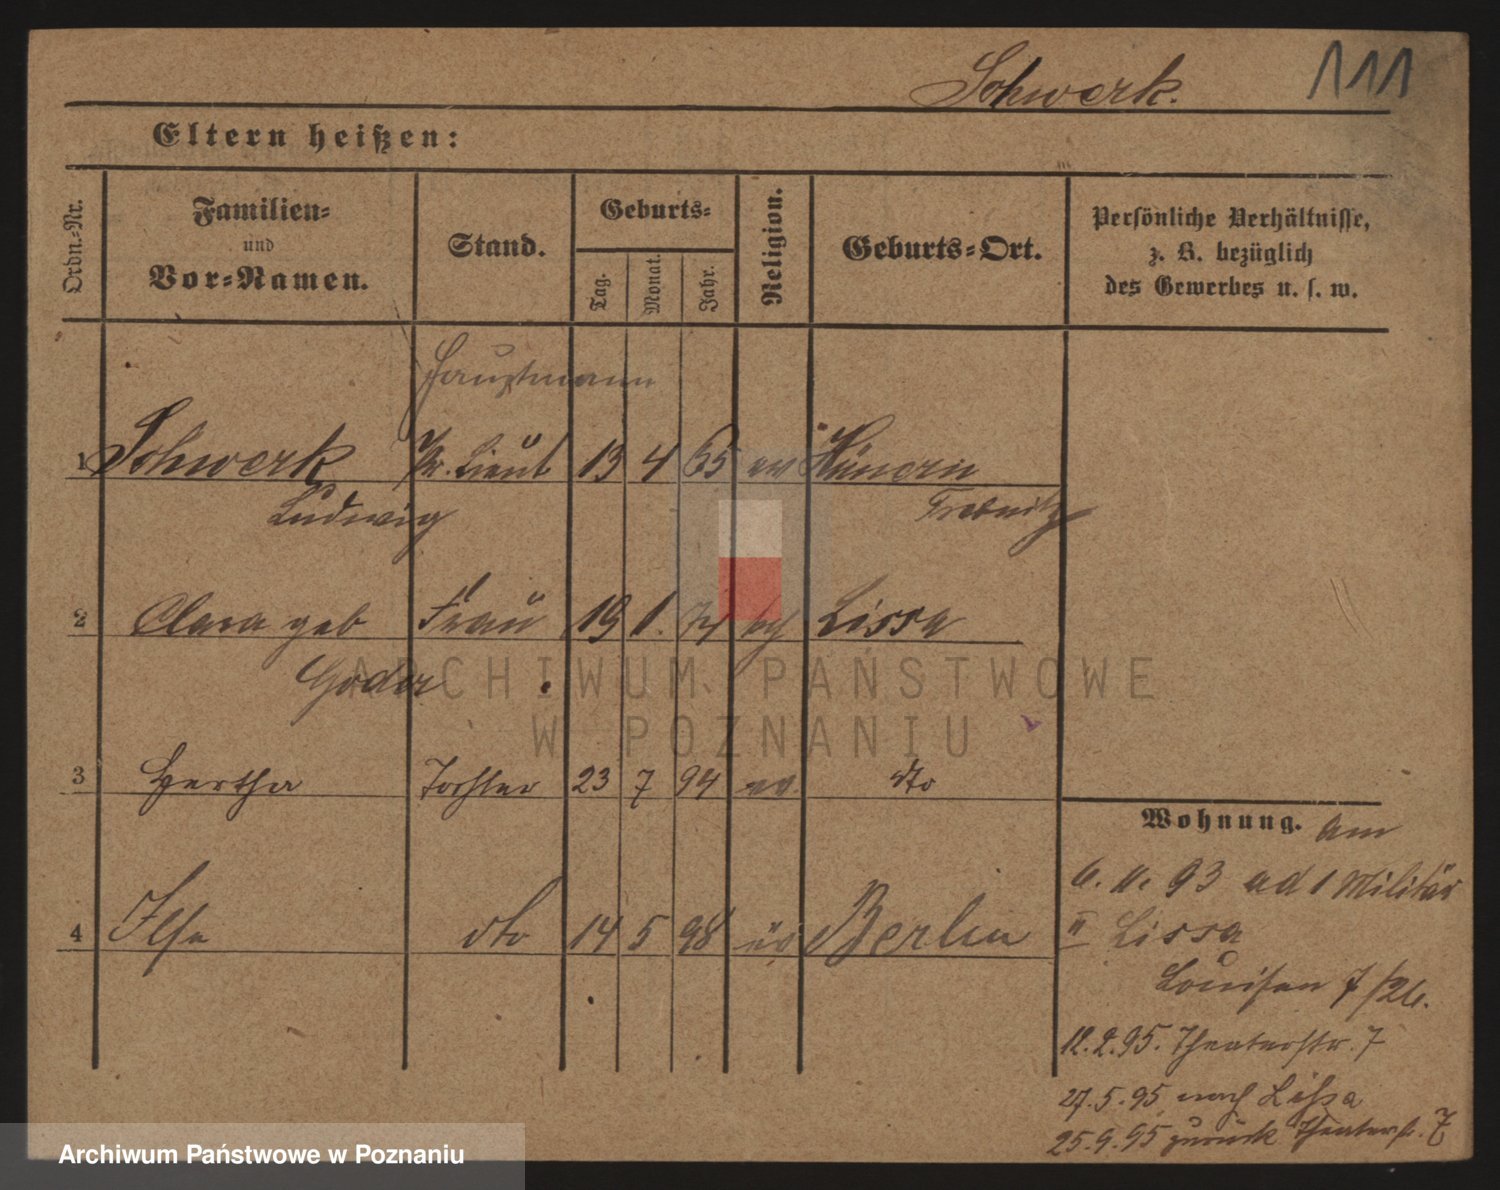 Schwerk.
111
Eltern heißen:
Ordn.-Nr.
Familien-
und
Vor-Namen.
Stand.
Geburts-
Tag.
Monat.
Jahr.
Religion.
Geburts-Ort.
Persönliche Verhältnisse,
z. B. bezüglich
des Gewerbes u. s. w.
Hauptmann
1 Schwerk Pr. Lieut 13 4 65 ev Hünern
Ludwig Trebnitz
2 Clara geb Frau 19 1. Lissa
3 Hertha Tochter 23 7 94 ev. dto
4 Ilse dto 14 5 98 ev Berlin
Wohnung. am
6. 11. 93 ad 1 Militär
II Lissa
Louisen 7/26.
12.2.95. Theaterstr. 7
27.5.95 nach Lissa
25.9.95 zurück Theaterstr. 7
ARCHIWUM PAŃSTWOWE
W POZNANIU
Archiwum Państwowe w Poznaniu